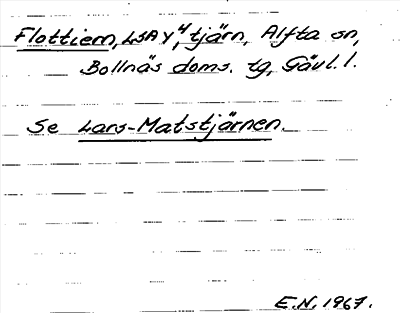 Flottiern, LSA Y 4, tjärn, Alfta sn,
Bollnäs doms. tg, Gävl. l.
Se Lars-Matstjärnen.
E.N. 1967.